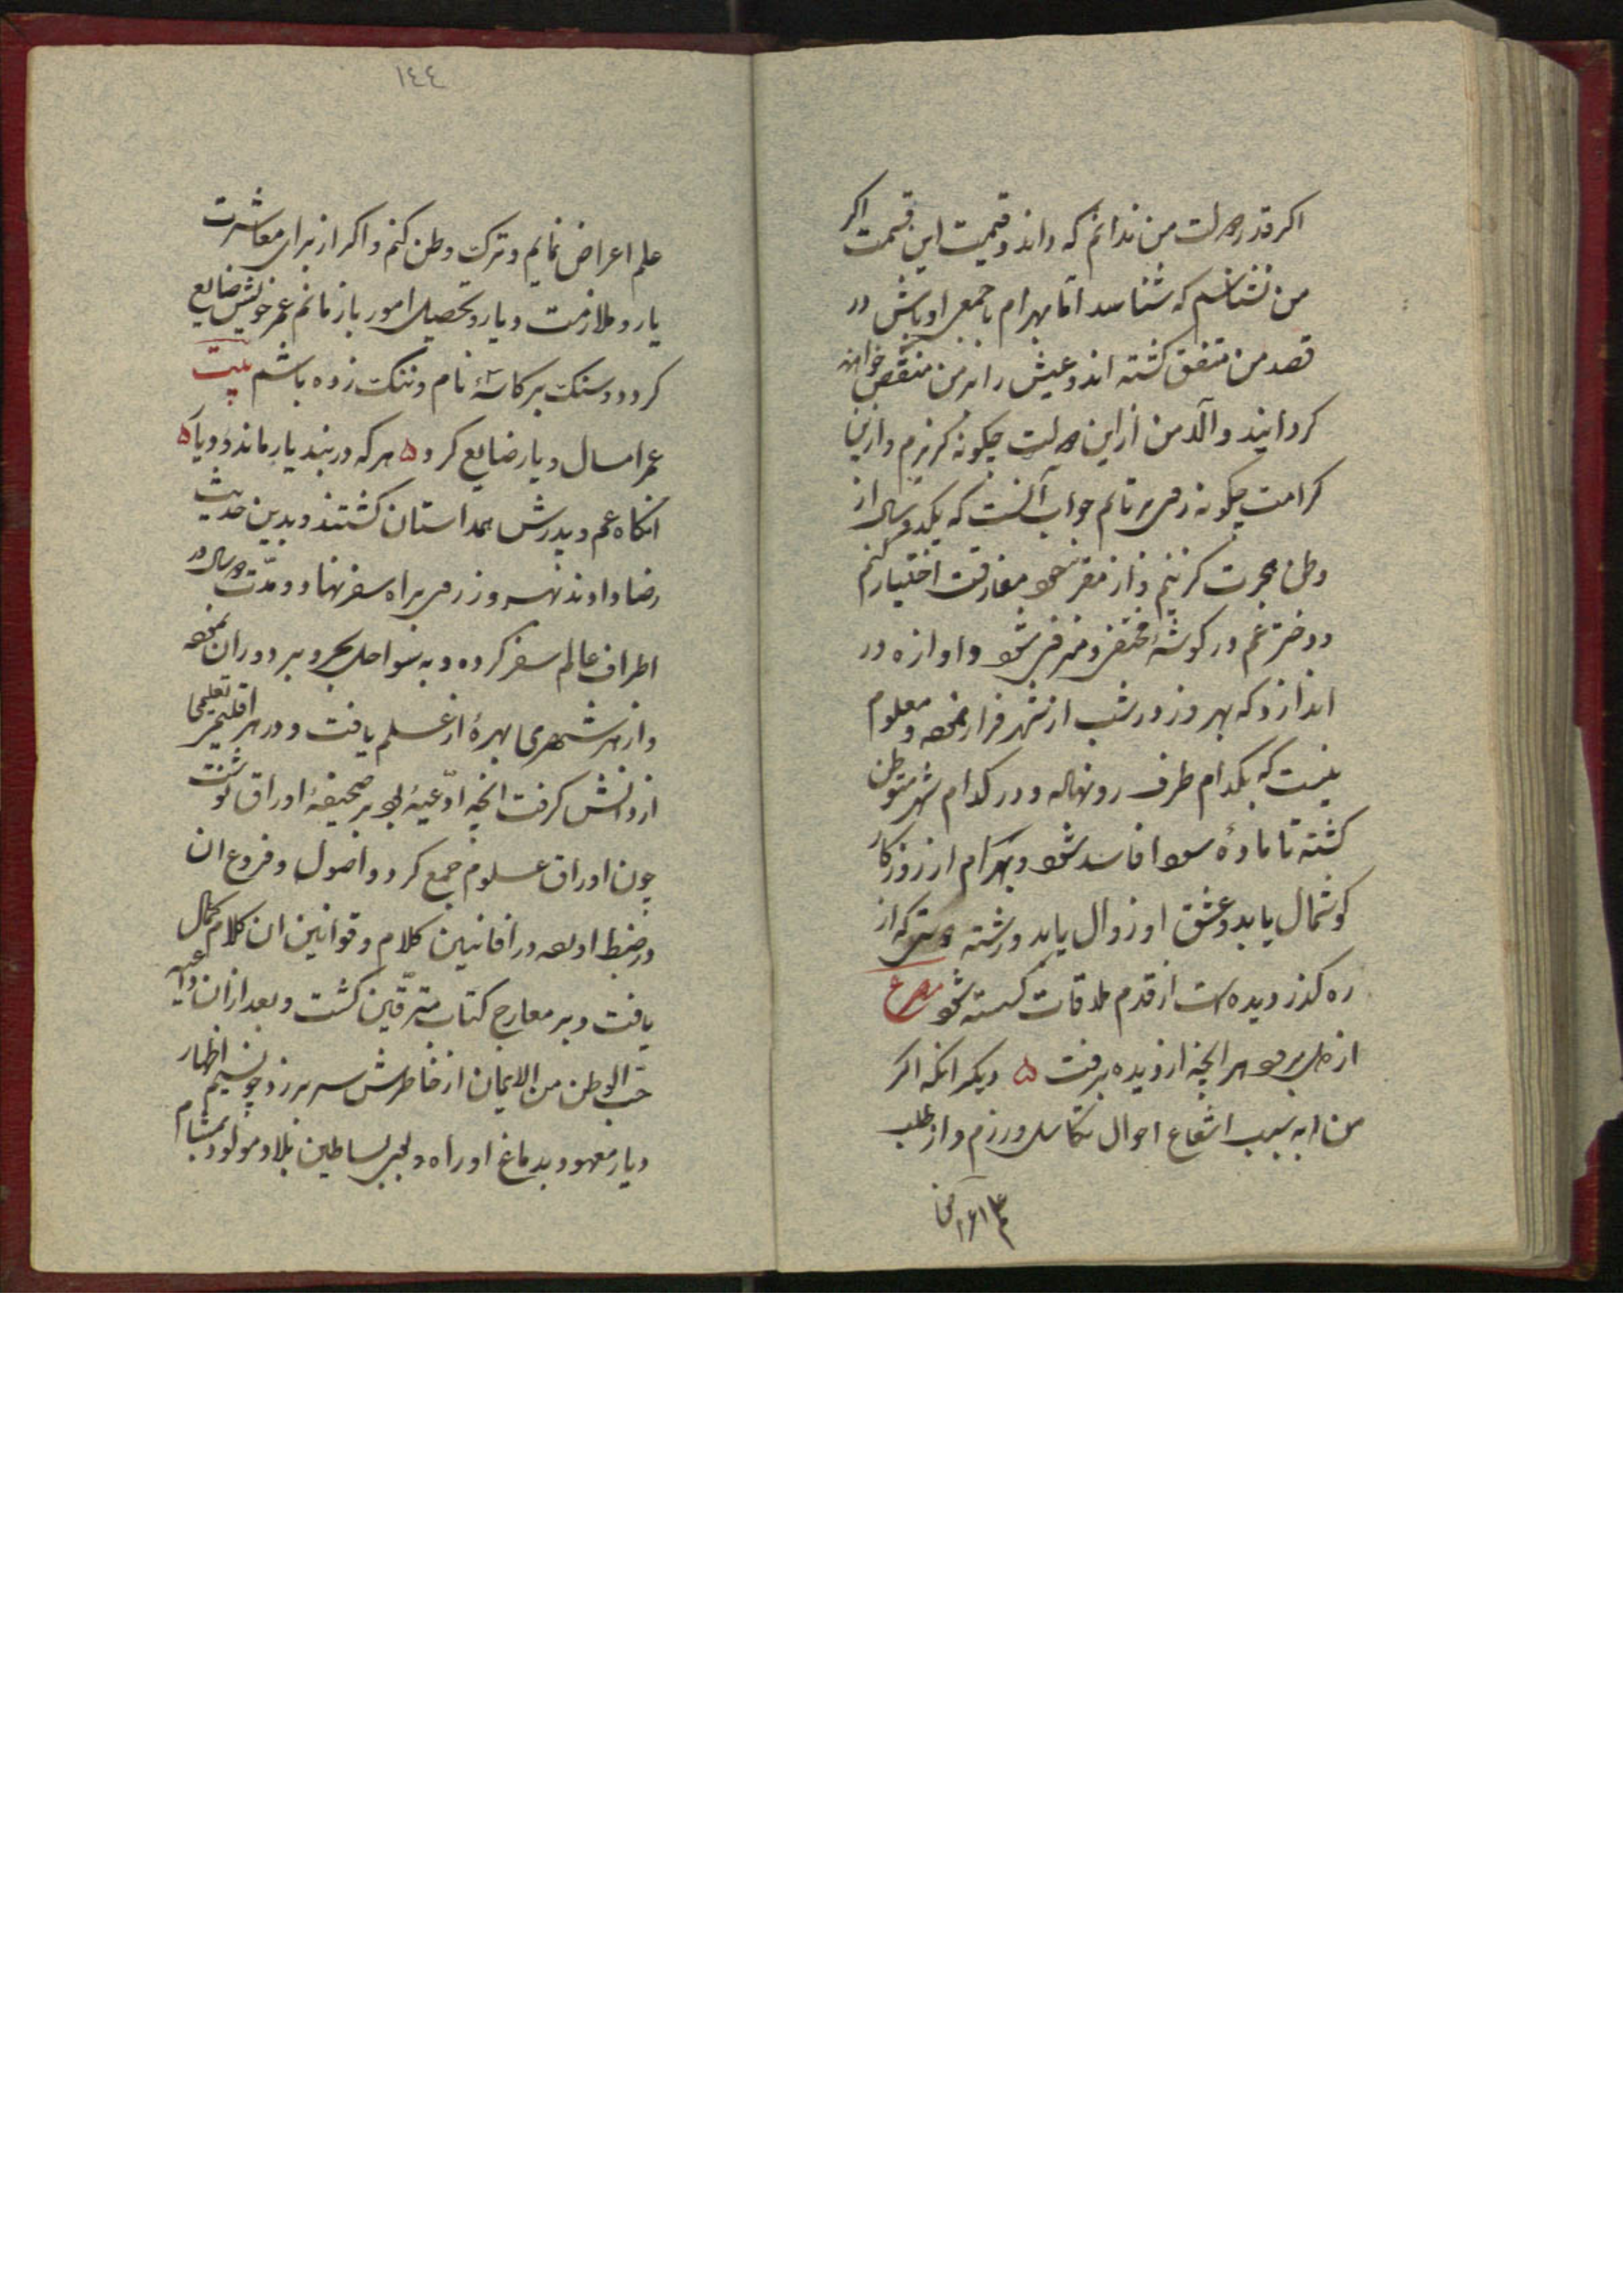 اکر قدر دولت من ندانم که داند و قیمت این قسمت اکر
من نشناسم که شناسد اما بهرام با جمعی اوباش در
قصد من متفق کشته اند و عیش را بر من منغص خواهند
کردانید والد من از این دولت چکونه کریزم و ازین
کرامت چکونه روی برتابم جواب آنست که یکدو سال از
وطن هجرت کزینم و از مقر خود مفارقت اختیار کنم
و دختر عم در کوشهٔ مختفی و منزوی شود و اوازه در
اندازد که بهروز در شب از شهر فرار نمود و معلوم
نیست که بکدام طرف رو نهاده و در کدام شهر متوطن
کشته تا مادهٔ سودا فاسد شود و بهرام از روزکار
کوشمال یابد و عشق او زوال یابد و رشته که از
ره کذر دیده است از قدم ملاقات کسسته شود مصرع
از دل برود هر انچه از دیده برفت ۵ دیکر انکه اکر
من به سبب احوال تکاسل ورزم و از طلب
۱۴۴
علم اعراض نمایم و ترک وطن کنم و اکر از برای معاشرت
یار و ملازمت دیار و تحصیل امور باز مانم عمر خویش ضایع
کرده و سنک بر کاسهٔ نام و ننک زده باشم بیت
عمر امسال و پار ضایع کرد ۵ هر که در بند یار ماند و دیار ۵
انکاه عم و پدرش همداستان کشتند و بدین حدیث
رضا دادند بهروز روی براه سفر نهاد و مدت دو سال در
اطراف عالم سفر کرده و به سواحل بحر و بر دوران نمود
و از هر شهری بهرهٔ از علم یافت و در هر اقلیم تعلیمی
از دانش کرفت انچه ادعیهٔ بود بر صحیفهٔ اوراق نوشت
چون اوراق علوم جمع کرد و اصول و فروع ان
در ضبط اورد و در افانین کلام و قوانین ان کلام کمال
یافت و بر معارج کتاب مترقین کشت و بعد از ان داعیه
حب الوطن من الایمان از خاطرش سر بر زد چو نسیم اظهار
دیار معهود بدماغ او راه و بساطین بلاد مولود بمشام